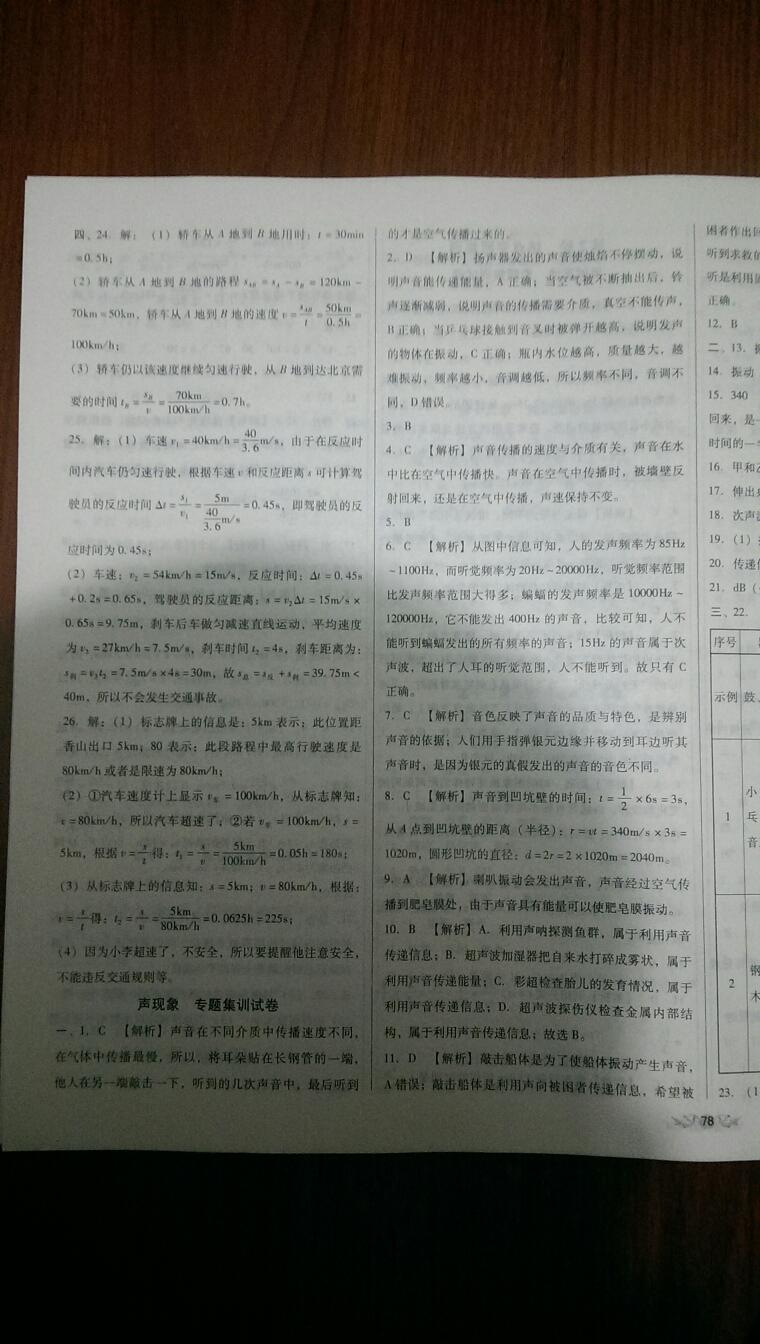 四、24. 解：（1）轿车从 A 地到 B 地用时：t = 30min
= 0.5h；
（2）轿车从 A 地到 B 地的路程 s_AB = s_A - s_B = 120km -
70km = 50km，轿车从 A 地到 B 地的速度 v = s_AB/t = 50km/0.5h =
100km/h；
（3）轿车仍以该速度继续匀速行驶，从 B 地到达北京需
要的时间 t_B = s_B/v = 70km/100km/h = 0.7h。
25. 解：（1）车速 v₁ = 40km/h = 40/3.6 m/s，由于在反应时
间内汽车仍匀速行驶，根据车速 v 和反应距离 s 可计算驾
驶员的反应时间 Δt = s₁/v₁ = 5m/(40/3.6 m/s) = 0.45s，即驾驶员的反
应时间为 0.45s；
（2）车速：v₂ = 54km/h = 15m/s，反应时间：Δt = 0.45s
+ 0.2s = 0.65s，驾驶员的反应距离：s = v₂Δt = 15m/s ×
0.65s = 9.75m，刹车后车做匀减速直线运动，平均速度
为 v₃ = 27km/h = 7.5m/s，刹车时间 t₂ = 4s，刹车距离为：
s刹 = v₃t₂ = 7.5m/s × 4s = 30m，故 s总 = s反 + s刹 = 39.75m <
40m，所以不会发生交通事故。
26. 解：（1）标志牌上的信息是：5km 表示：此位置距
香山出口 5km；80 表示：此段路程中最高行驶速度是
80km/h 或者是限速为 80km/h；
（2）①汽车速度计上显示 v车 = 100km/h，从标志牌知：
v = 80km/h，所以汽车超速了；②若 v车 = 100km/h，s =
5km，根据 v = s/t 得：t₁ = s/v = 5km/100km/h = 0.05h = 180s；
（3）从标志牌上的信息知：s = 5km；v = 80km/h，根据：
v = s/t 得：t₂ = s/v = 5km/80km/h = 0.0625h = 225s；
（4）因为小李超速了，不安全，所以要提醒他注意安全，
不能违反交通规则等。
声现象 专题集训试卷
一、1. C 【解析】声音在不同介质中传播速度不同，
在气体中传播最慢，所以，将耳朵贴在长钢管的一端，
他人在另一端敲击一下，听到的几次声音中，最后听到
的才是空气传播过来的。
2. D 【解析】扬声器发出的声音使烛焰不停摆动，说
明声音能传递能量，A 正确；当空气被不断抽出后，铃
声逐渐减弱，说明声音的传播需要介质，真空不能传声，
B 正确；当乒乓球接触到音叉时被弹开越高，说明发声
的物体在振动，C 正确；瓶内水位越高，质量越大，越
难振动，频率越小，音调越低，所以频率不同，音调不
同，D 错误。
3. B
4. C 【解析】声音传播的速度与介质有关，声音在水
中比在空气中传播快。声音在空气中传播时，被墙壁反
射回来，还是在空气中传播，声速保持不变。
5. B
6. C 【解析】从图中信息可知，人的发声频率为 85Hz
~1100Hz，而听觉频率为 20Hz ~ 20000Hz，听觉频率范围
比发声频率范围大得多；蝙蝠的发声频率是 10000Hz ~
120000Hz，它不能发出 400Hz 的声音，比较可知，人不
能听到蝙蝠发出的所有频率的声音；15Hz 的声音属于次
声波，超出了人耳的听觉范围，人不能听到。故只有 C
正确。
7. C 【解析】音色反映了声音的品质与特色，是辨别
声音的依据；人们用手指弹银元边缘并移动到耳边听其
声音时，是因为银元的真假发出的声音的音色不同。
8. C 【解析】声音到凹坑壁的时间：t = 1/2 × 6s = 3s，
从 A 点到凹坑壁的距离（半径）：r = vt = 340m/s × 3s =
1020m，圆形凹坑的直径：d = 2r = 2 × 1020m = 2040m。
9. A 【解析】喇叭振动会发出声音，声音经过空气传
播到肥皂膜处，由于声音具有能量可以使肥皂膜振动。
10. B 【解析】A. 利用声呐探测鱼群，属于利用声音
传递信息；B. 超声波加湿器把自来水打碎成雾状，属于
利用声音传递能量；C. 彩超检查胎儿的发育情况，属于
利用声音传递信息；D. 超声波探伤仪检查金属内部结
构，属于利用声音传递信息；故选 B。
11. D 【解析】敲击船体是为了使船体振动产生声音，
A 错误；敲击船体是利用声向被困者传递信息，希望被
困者作出回
听到求救的
听是利用固
正确。
12. B
二、13. 振
14. 振动
15. 340
回来，是一
时间的一
16. 甲和乙
17. 伸出
18. 次声波
19.（1）
20. 传递信
21. dB（
三、22.
序号
示例 鼓、
1 小
乓
音
2 钢
木
23.（1
78